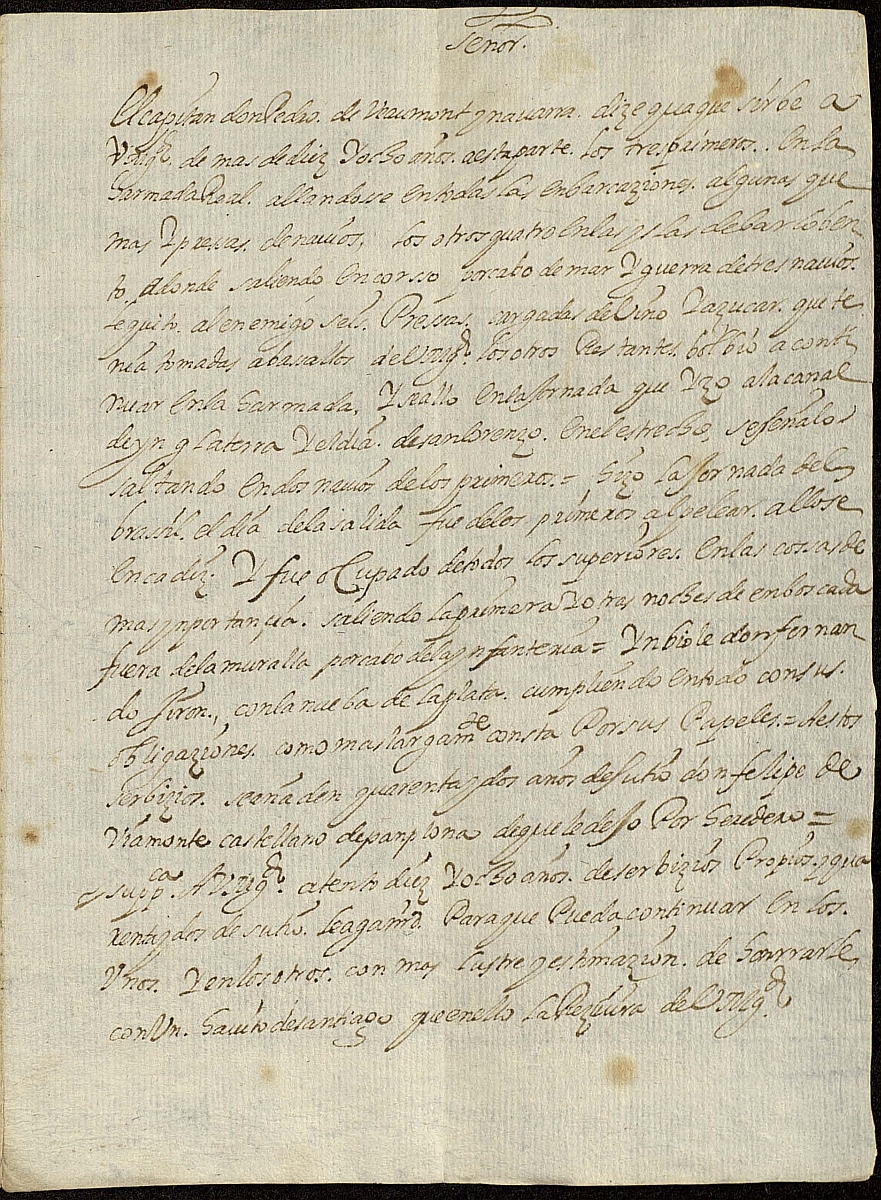 Señor.
El capitan don Pedro. de Veaumont y navarra. dize qua que sirbe a
V. Mgd. de mas de diez Y ocho años. a esta parte. los tres primeros.. En la
Harmada Real. allandosse en todas las enbarcaziones. algunas que
mas Y pressas. de navios; los otros quatro en las yslas de barloben
to, adonde saliendo en corsso por cabo de mar Y guerra de tres navios.
le quito. al enemigo seis. Pressas. cargadas de Vino Y azucar. que te
nia tomadas a basallos de V. Mgd. los otros Restantes. bolbio a conti
nuar en la Harmada, Y se allo en la Jornada que Yzo a la canal
de yngLaterra Y el dia. de san Lorenzo. en el estrecho, se señalo
saltando en dos navios de los primeros.= Hizo La Jornada del
brasil. el dia de la salida fue de los primeros al pelear. allose
en cadiz. Y fue oCupado de todos los superiores. en las cossas de
mas ynportançia. saliendo la primera Y otras noches de enboscada
fuera de la muralla por cabo de la ynfanteria = Ynbiole don fernan
do Jiron., con la nueba de la plata. cumpliendo en todo con sus.
obligaziones. como mas largamte consta Por sus Papeles.= A estos
serbizios. se añaden quarenta y dos años de su tio don felipe de
Viamonte castellano de panplona de que le desso Por Heredero =
suppca. A V. Mgd. atento diez Y ocho años. de serbizios Propios. y qua
renta y dos de su tio. le aga md. Para que Pueda continuar En los.
Vnos. Y en los otros. con mas lustre y estimazion. de Honrrarle
con Vn. Havito de santiago que en ello La Rezivira de V. Mgd.